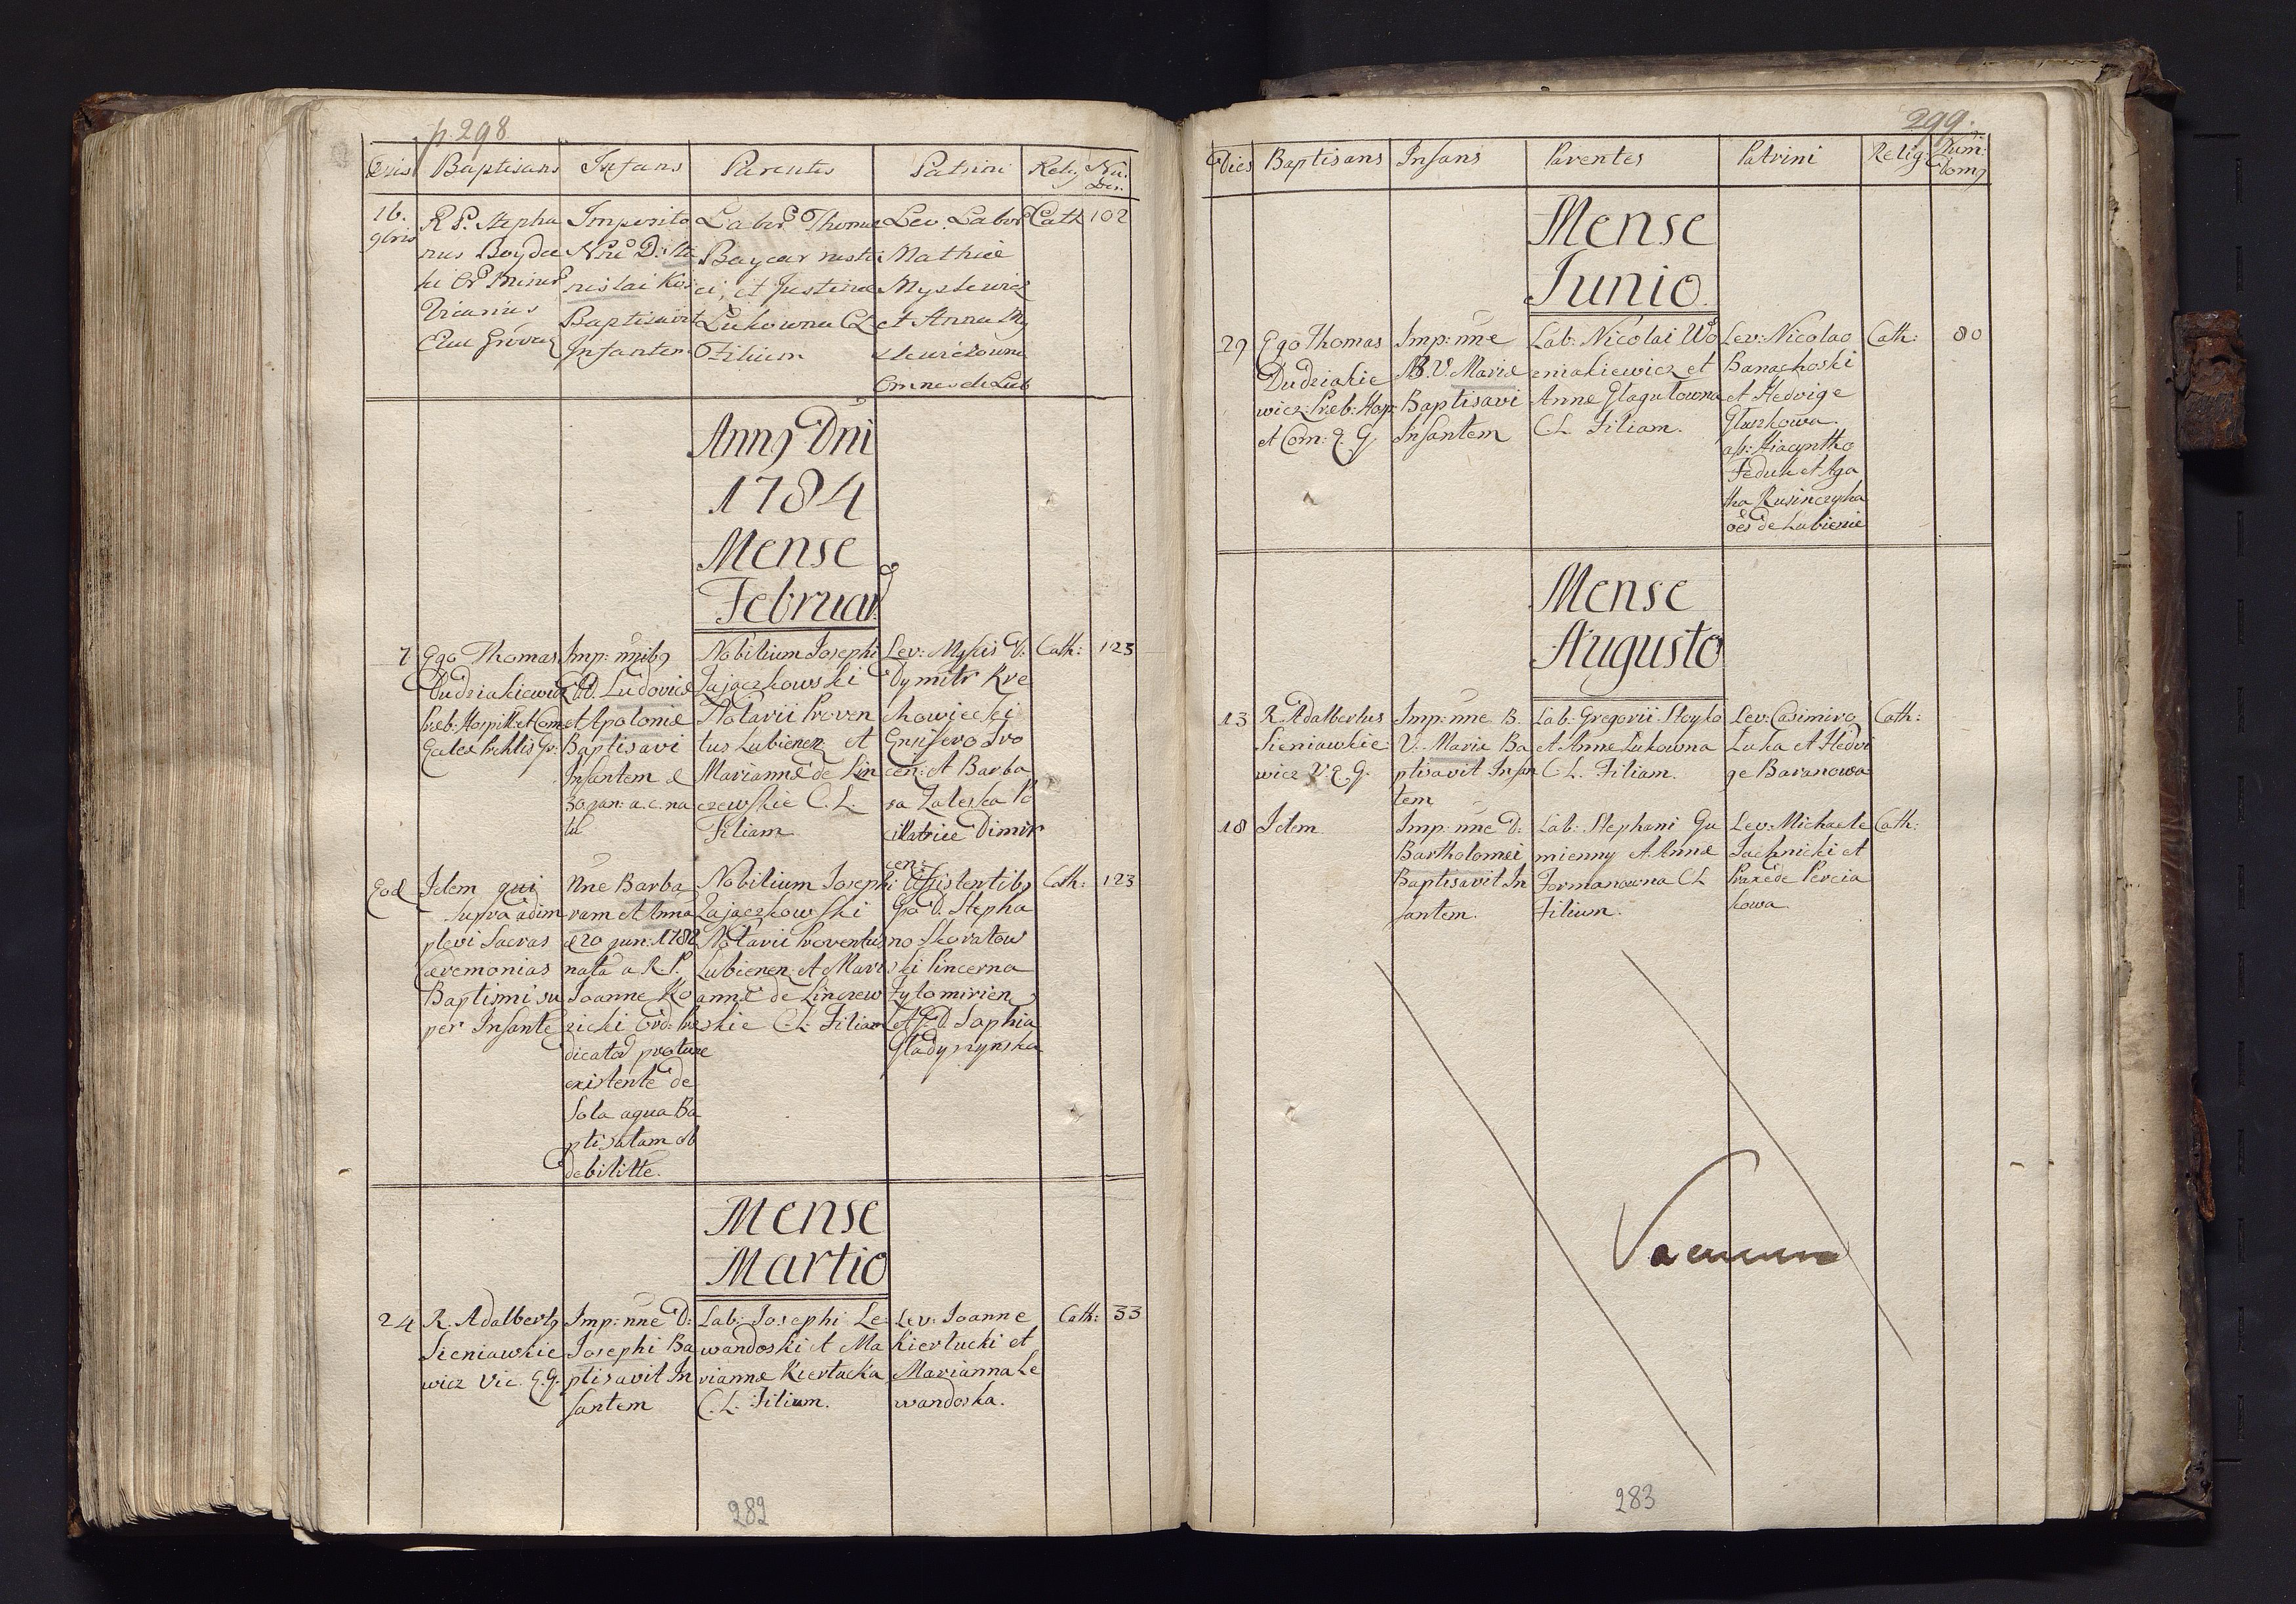 p. 298
Baptisans Infans Parentes Patrini Relig Nu. Dom.
16. 9bris
R P. Stepha
nus Boyda
Vicarius
Imposito
Nne D: Sta
nislai Kos
Baptisavit
Infantem
Labor. Thomae
et Justinae
Lukowna CL
Filium
Lev. Labor
Mathiae
et Anna My
Omnes de Lub
Cath 102
Anno Dni
1784
Mense
Februar
7
Ego Thomas
Dudziakiewicz
Preb. Hospitt et Com
Imp: nnibg
DD. Ludovicae
et Apoloniae
Baptisavi
Infantem e
Nobilium Josephi
Zajaczkowski
Notarii Proven
tus Lubienen et
Mariannae de Lin
czewskie C. L.
Filiam
Lev: Mgficis D:
Dymitr Kre
chowiecki
Ensifero Ovo
cen: et Barba
ra Zaleska
Cath: 123
Eod
Idem qui
supra adim
plevi Sacras
Ceremonias
Baptismi su
per Infante
Nne Barba
ram et Anna
d 20 jun: 1782
nata a R. P.
Joanne Ko
zicki Ord: Pre
dicator
existente de
sola aqua Ba
ptisatam ob
debilitte.
Nobilium Josephi
Zajaczkowski
Notarii Proventus
Lubienen et Mari
annae de Linczew
skie CL Filiam
Assistentibg
Gso D. Stepha
no Skoratow
ski Pincerna
Zytomirien
et D. Sophia
Gladyszynska
Cath: 123
Mense
Martio
24
R. Adalbertg
Sieniawkie
wicz Vic. E.G.
Imp: nne D:
Josephi Ba
ptisavit In
fantem
Lab: Josephi Le
wandoski et Ma
riannae Kiertucka
C. L. Filium.
Lev: Joanne
Kiertucki et
Marianna Le
wandoska.
Cath: 33
282
299.
Dies Baptisans Infans Parentes Patrini Relig: Num: Domg
Mense
Junio
29
Ego Thomas
Dudziakie
wicz: Preb: Hosp
et Com: E. G.
Imp: nne
B. V. Mariae
Baptisavi
Infantem
Lab: Nicolai Wo
zniakiewicz et
Annae Glagutowna
CL Filiam.
Lev: Nicolao
Banachoski
et Hedvige
Gluszkowa.
ass: Hiacyntho
Feduk et Aga
tha Rusinczycha
oes de Lubienie
Cath: 80
Mense
Augusto
13
R. Adalbertus
Sieniawkie
wicz V. E. G.
Imp: nne B.
V. Mariae Ba
ptisavit Infan
tem
Lab: Gregorii Stoyko
et Annae Lukowna
C L. Filiam.
Lev: Casimiro
Luka et Hedvi
ge Baranowa
Cath:
18
Idem
Imp: nne D:
Bartholomei
Baptisavit In
fantem.
Lab: Stephani Gu
mienny et Annae
Formanowna CL
Filium.
Lev: Michaele
Jachnicki et
Praxede Percia
kowa.
Cath:
Vacuum
283